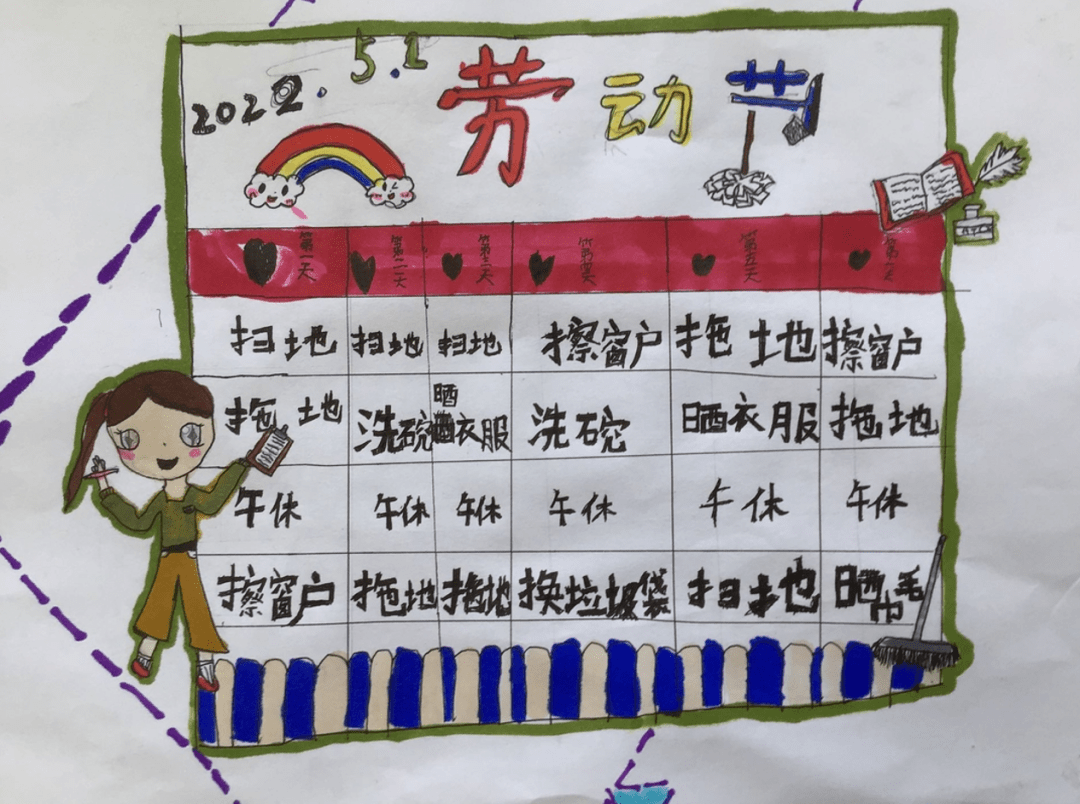 2022.5.1
劳动节
第一天 第二天 第三天 第四天 第五天
扫地 扫地 扫地 擦窗户 拖地 擦窗户
拖地 洗碗 晒衣服 洗碗 晒衣服 拖地
午休 午休 午休 午休 午休 午休
擦窗户 拖地 拖地 换垃圾袋 扫地 晒毛巾